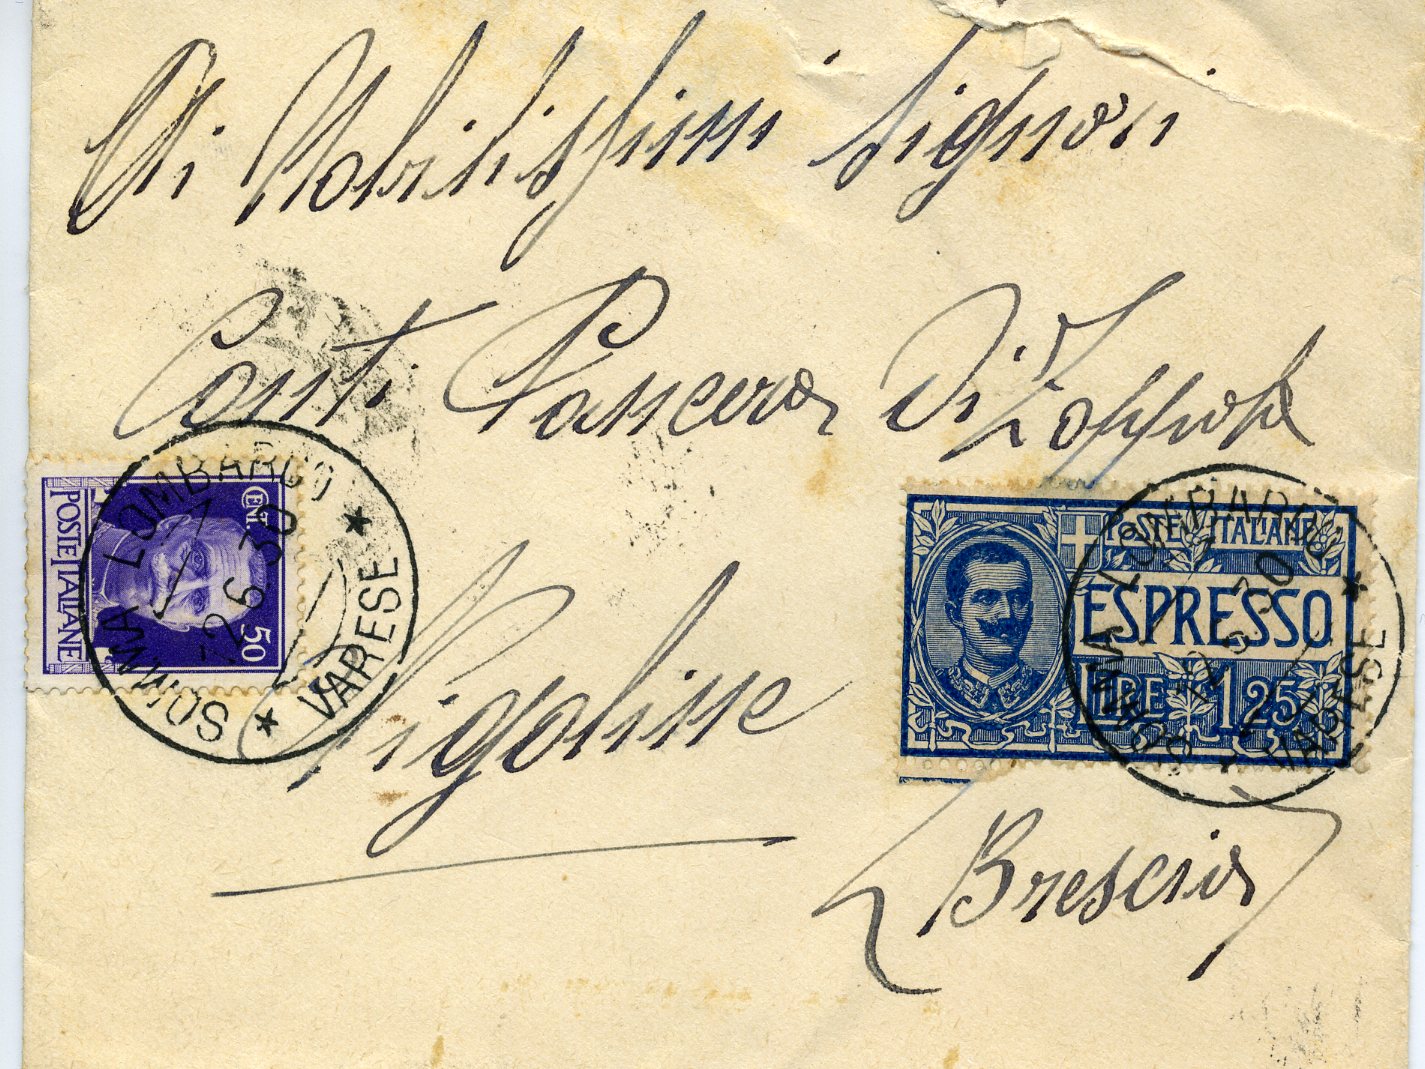 Ai Nobilissimi Signori
Conti Pancera Di Zoppola
Vigolisse
(Brescia)
POSTE ITALIANE
CENT. 50
SOMMA LOMBARDO
12.6.30
VARESE
POSTE ITALIANE
ESPRESSO
LIRE 1,25
SOMMA LOMBARDO
12.6.30
VARESE